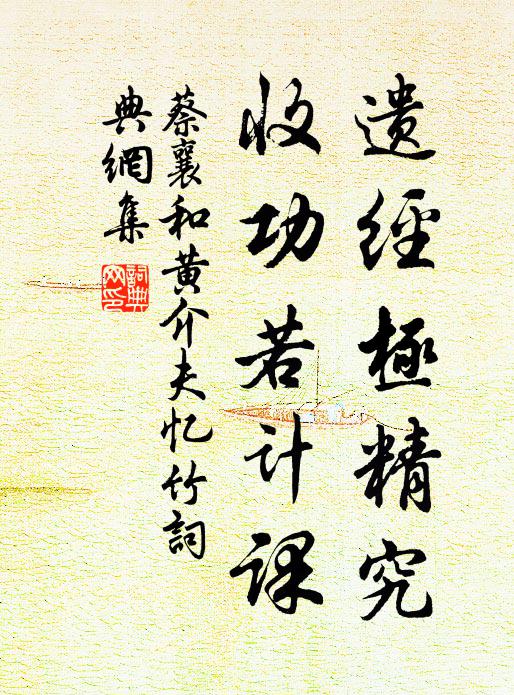 遗经極精究
收功若计课
蔡襄和黄介夫忆竹詞
典網集
詞典
网印